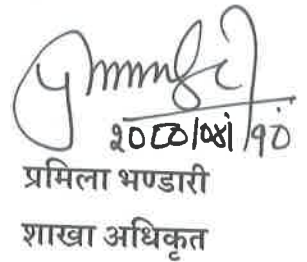 २०८०/०४/१०
प्रमिला भण्डारी
शाखा अधिकृत